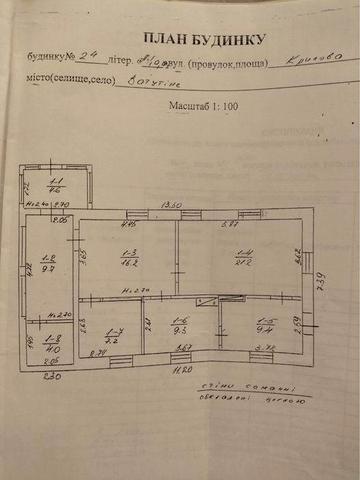 ПЛАН БУДИНКУ
будинку№ 24 літер. вул. (провулок,площа) Кригова
місто(селище,село) Ватутіне
Масштаб 1: 100
1-1
4.6
1.72
H=2.40 2.70
13.50
2.05
4.45
5.87
1-2
9.7
4.72
3.65
1-3
16.2
1-4
21.2
3.62
7.39
H=2.70
H=2.70
1-8
4.0
1.95
2.05
2.30
2.63
1-7
7.2
2.74
2.61
1-6
9.3
3.67
1-5
9.4
2.59
3.72
11.20
стіни саманні
обкладені цеглою